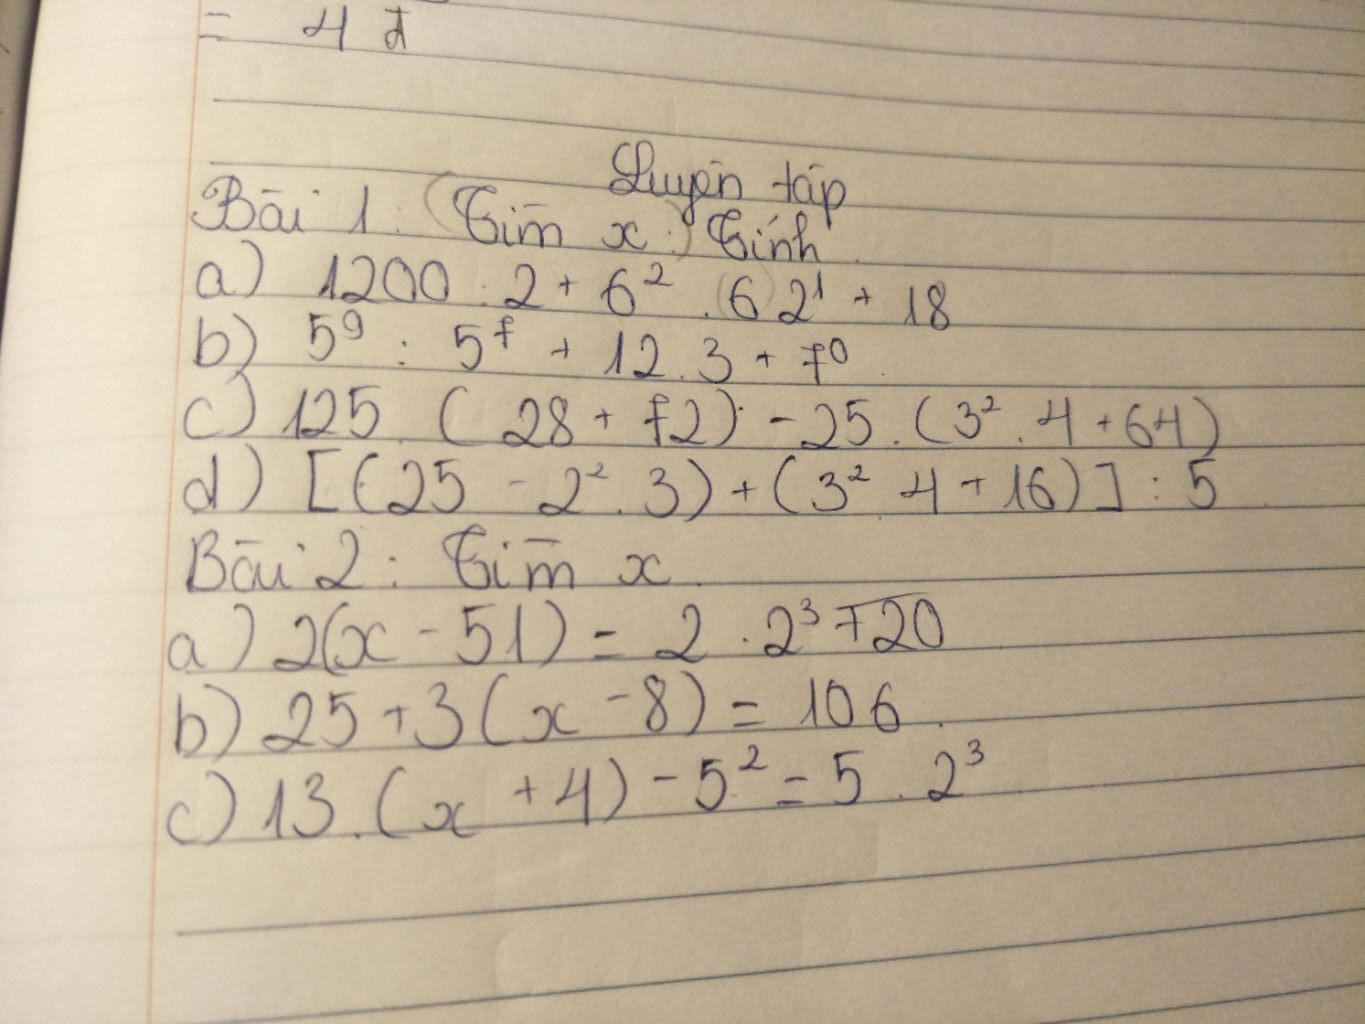 = 4 đ
Luyện tập
Bài 1: (Tìm x:) Tính
a) 1200 : 2 + 6² . (6) 2¹ + 18
b) 5⁹ : 5⁷ + 12 . 3 + 7⁰
c) 125 . (28 + 72) - 25 . (3² . 4 + 64)
d) [(25 - 2² . 3) + (3² 4 + 16)] : 5
Bài 2 : Tìm x
a) 2(x - 51) = 2 . 2³ + 20
b) 25 + 3(x - 8) = 106
c) 13 . (x + 4) - 5² = 5 . 2³